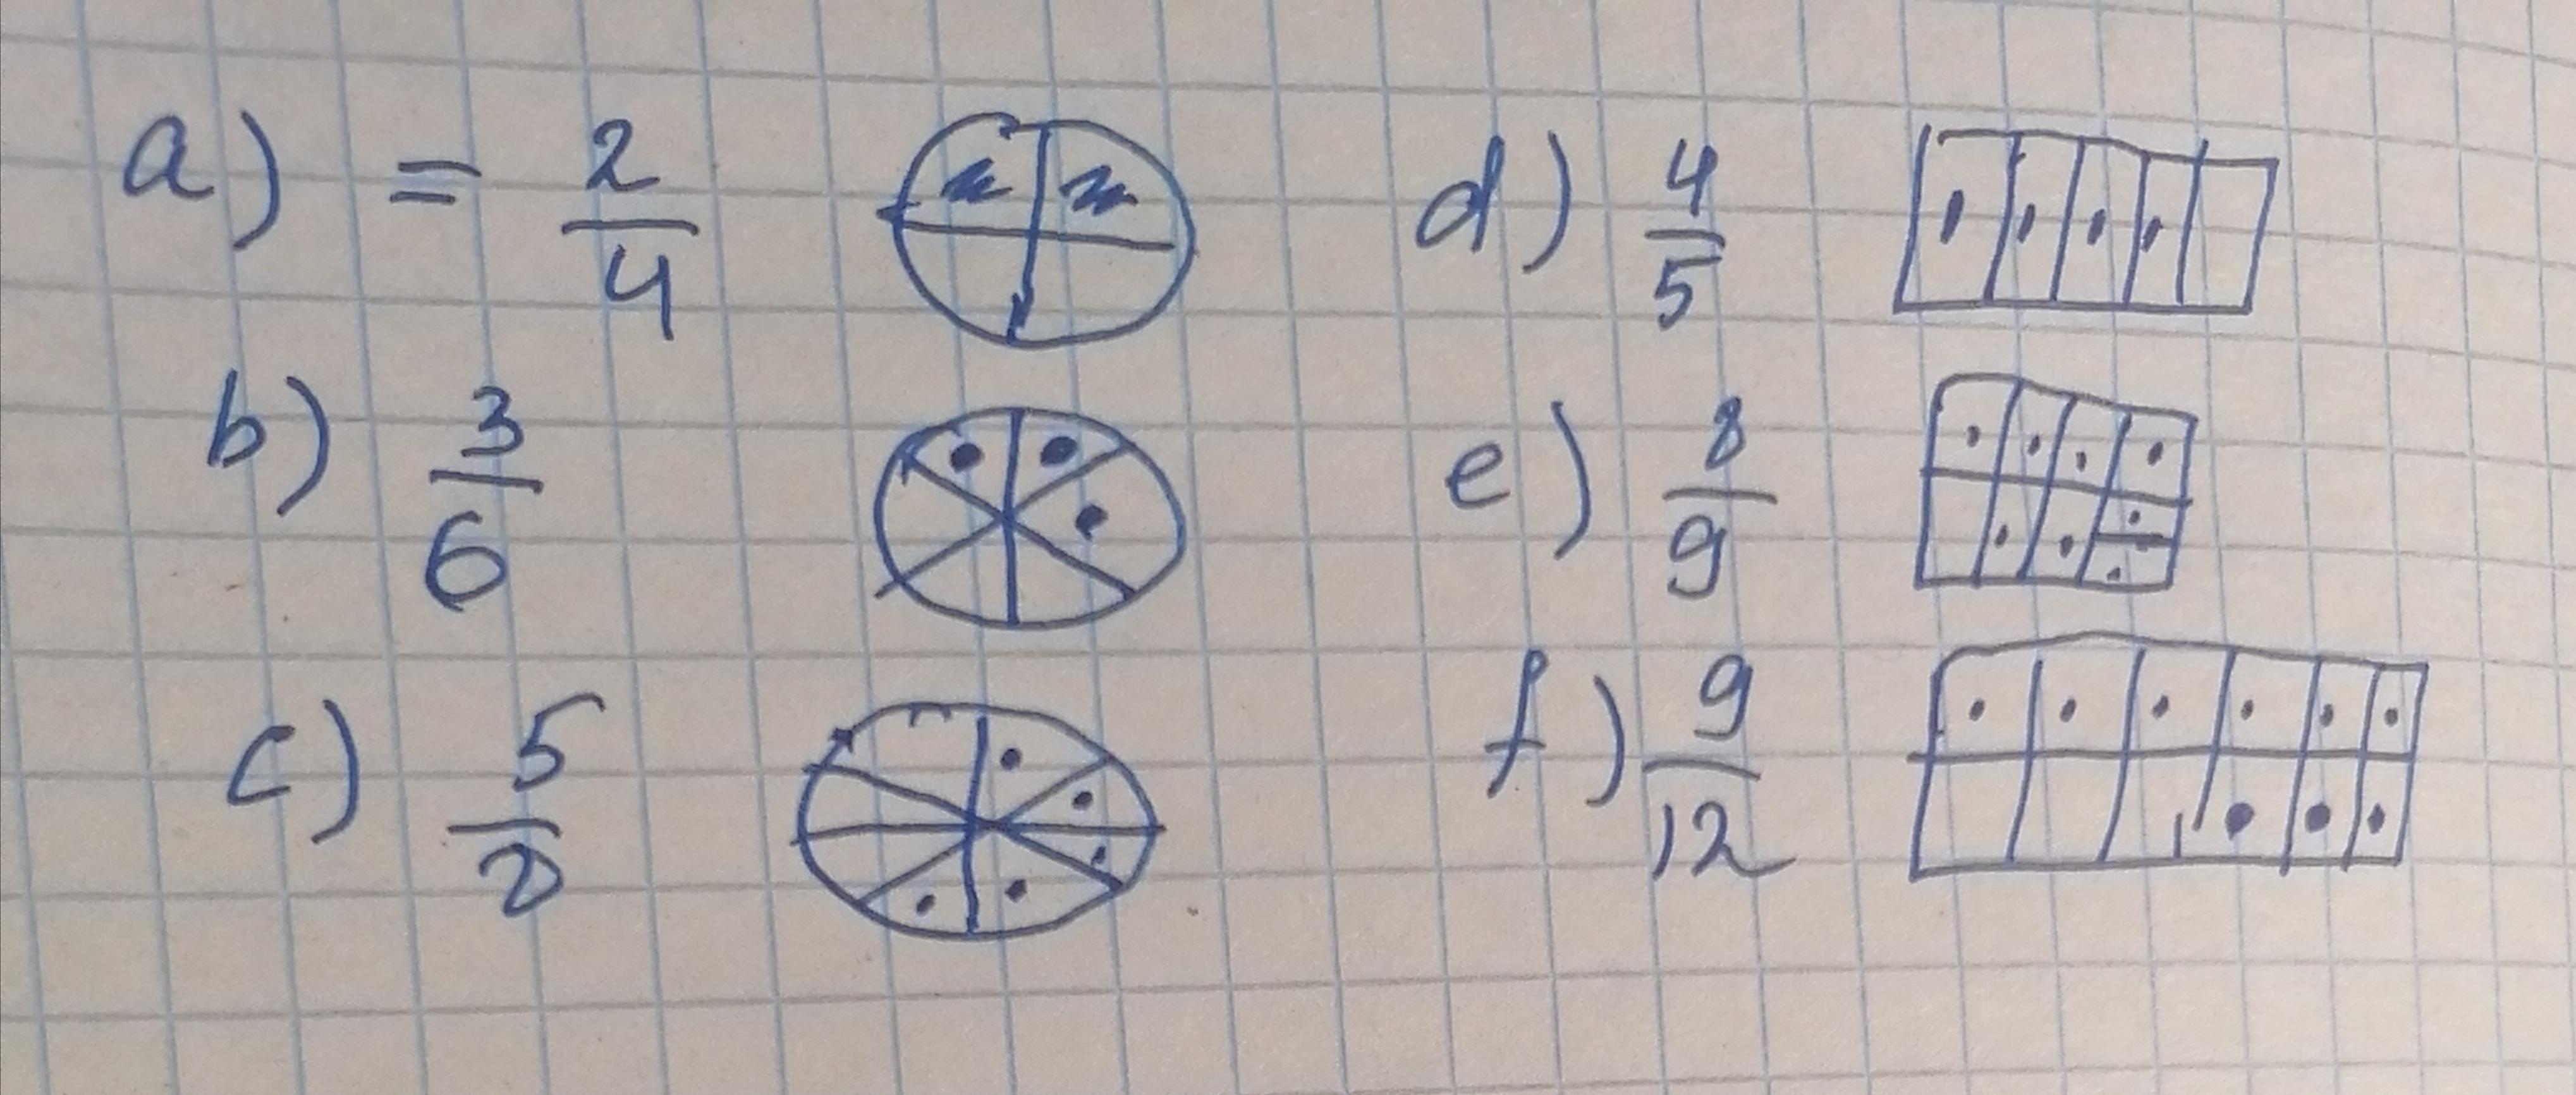 a) = 2/4
b) 3/6
c) 5/8
d) 4/5
e) 8/9
f) 9/12